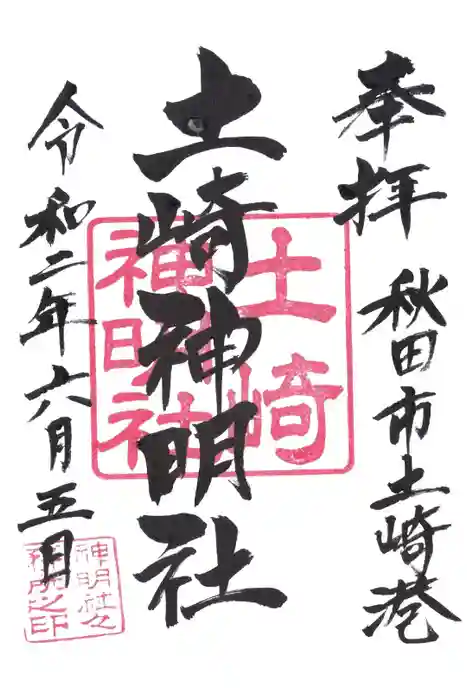 奉拝 秋田市土崎港
土崎神明社
令和二年六月五月
土崎
神明社
神明社々
務所之印